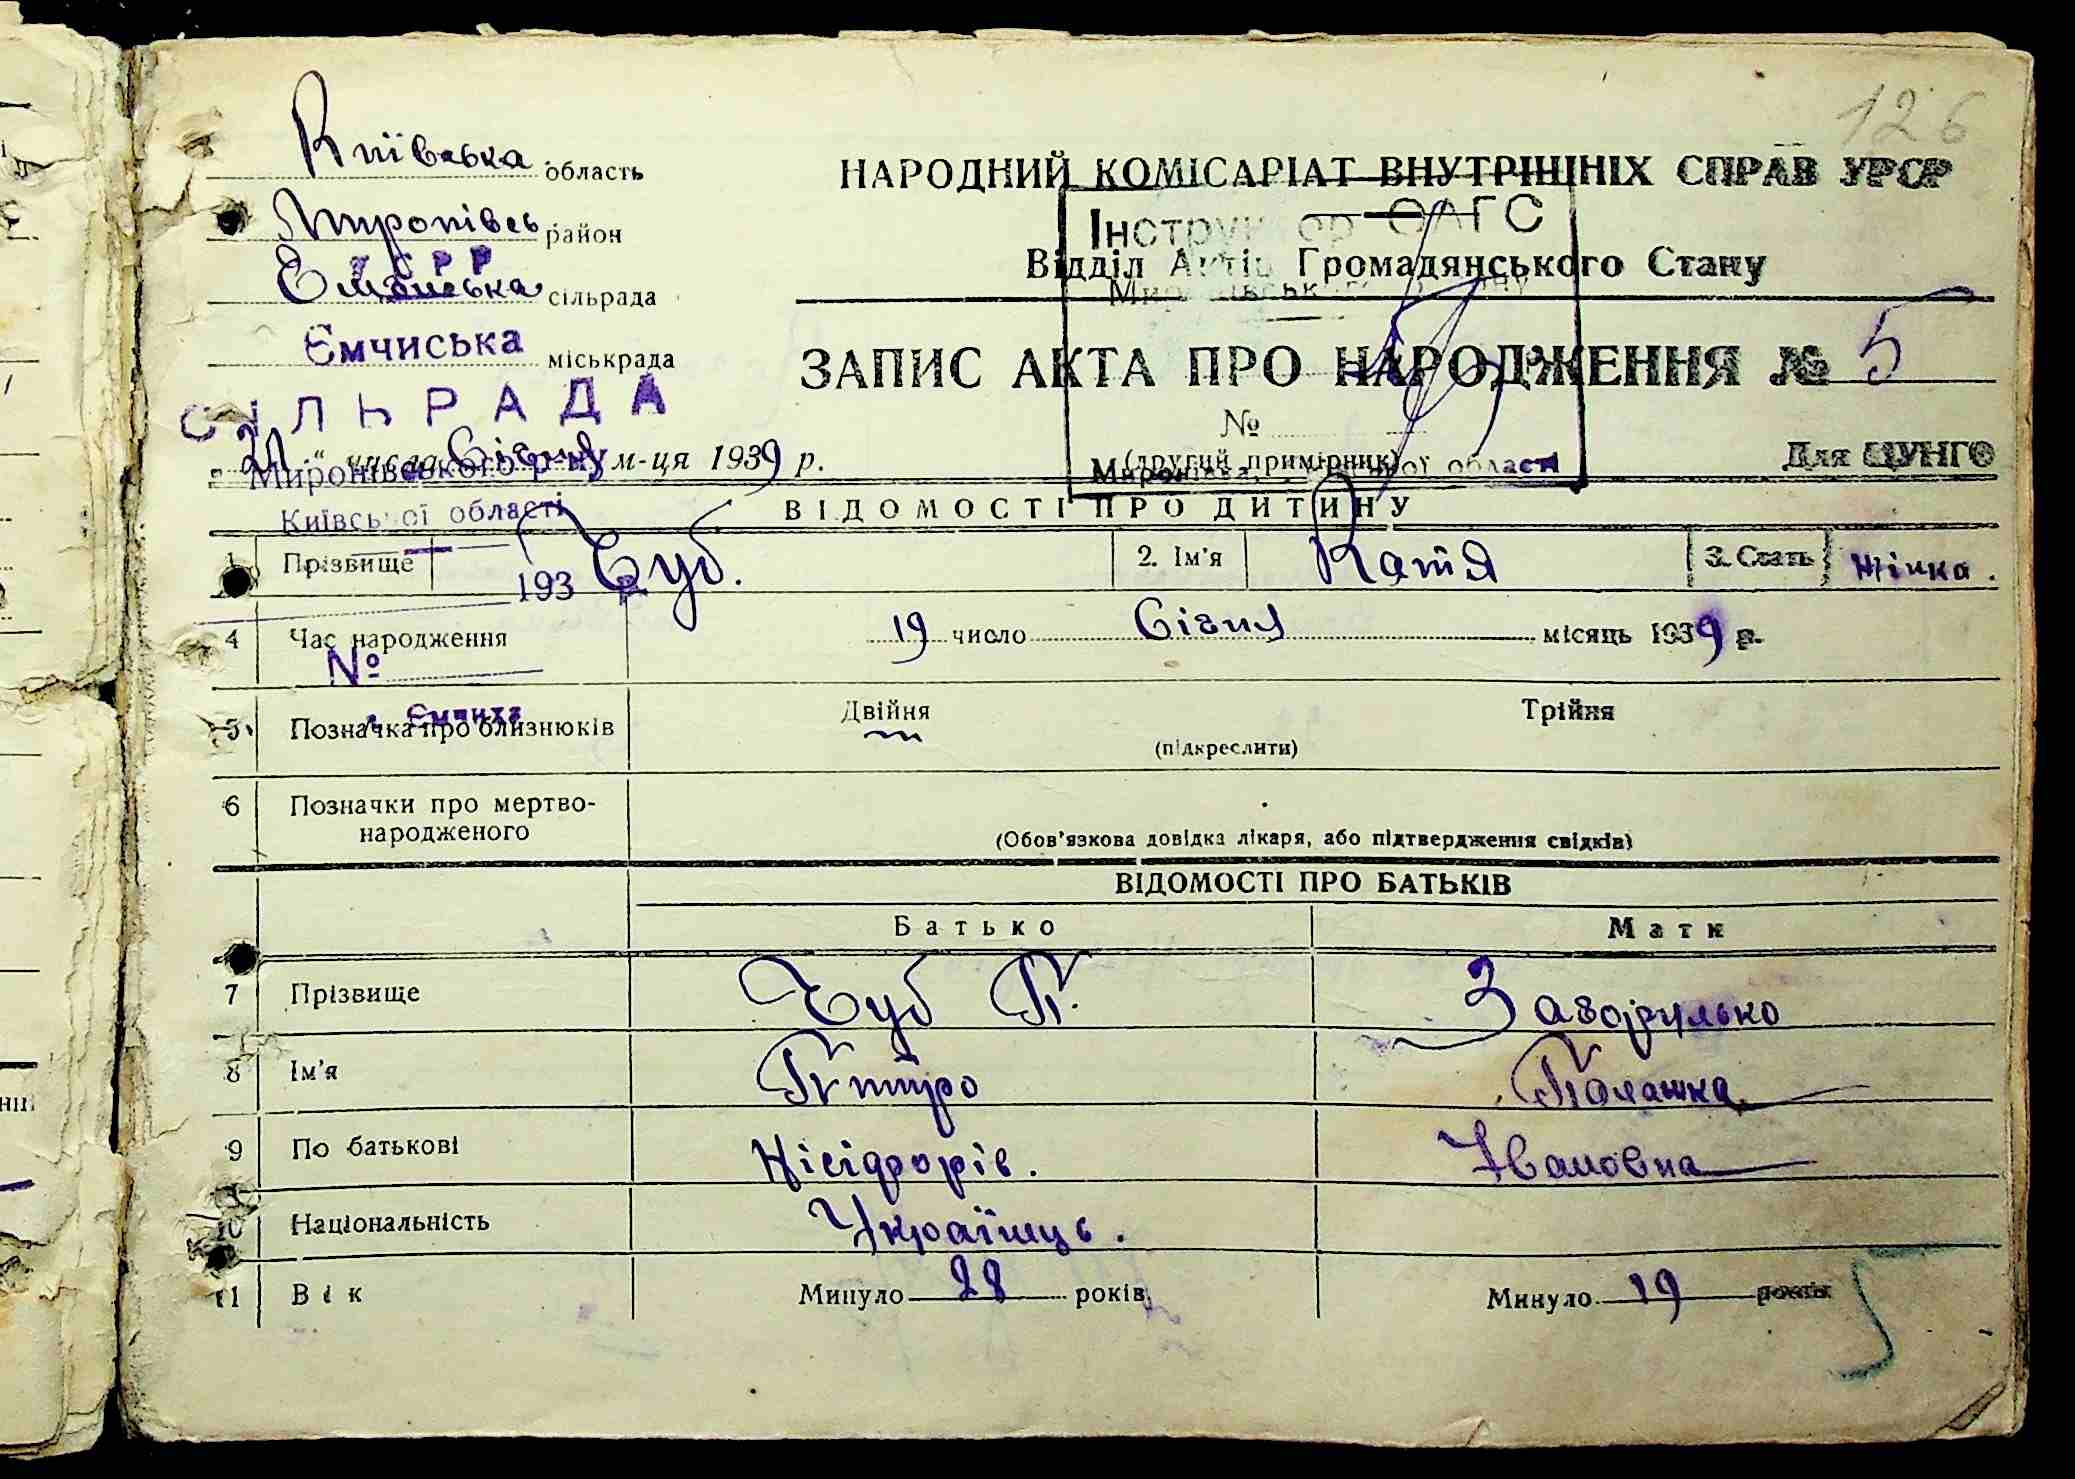 126
Київська область
НАРОДНИЙ КОМІСАРІАТ ВНУТРІШНІХ СПРАВ УРСР
Миронівсь район
Інструктор ОАГС
УСРР
Відділ Актів Громадянського Стану
сільрада
Ємчиська міськрада
ЗАПИС АКТА ПРО НАРОДЖЕННЯ № 5
СІЛЬРАДА
№
21 " числа Січня м-ця 1939 р.
(другий примірник)
Для ЦУНГО
Миронівського р-ну
Миронівка, області
Київської області
ВІДОМОСТІ ПРО ДИТИНУ
1 Прізвище Чуб. 2. Ім'я Катя 3. Стать Жінка.
193 р
4 Час народження 19 число Січня місяць 1939 р.
№
с. Ємчиха
5 Позначка про близнюків Двійня Трійня
(підкреслити)
6 Позначки про мертво-
народженого
(Обов'язкова довідка лікаря, або підтвердження свідків)
ВІДОМОСТІ ПРО БАТЬКІВ
Батько Мати
7 Прізвище Чуб П. Загорулько
8 Ім'я Петро Палашка
9 По батькові Нісіфорів. Івановна
10 Національність Українць.
11 Вік Минуло 28 років Минуло 19 років
5